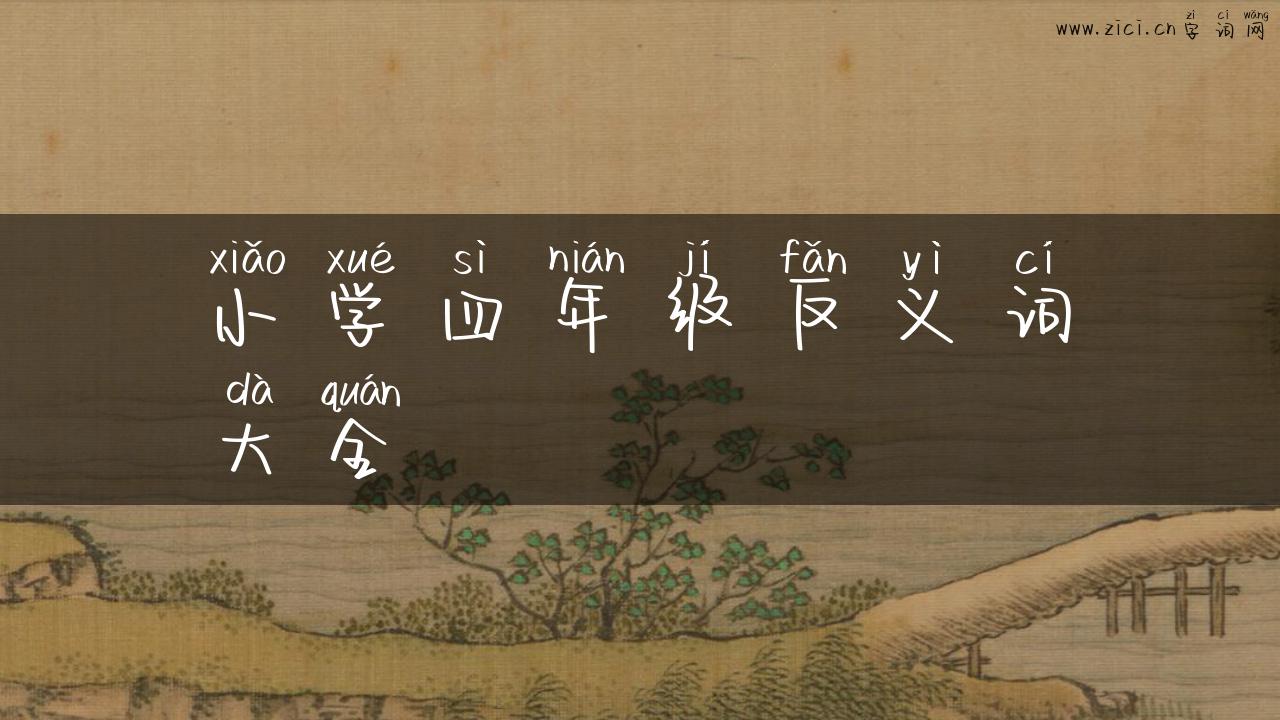 zì cí wǎng
www.zici.cn 字词网
xiǎo xué sì nián jí fǎn yì cí
小学四年级反义词
dà quán
大全